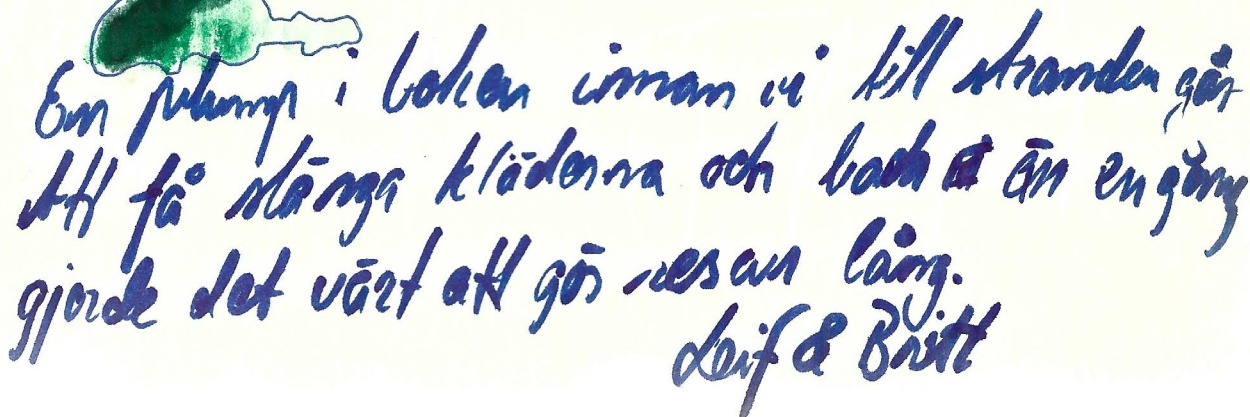 En plump i boken innan vi till stranden går
Att få slänga kläderna och bada än en gång
gjorde det värt att gös resan lång.
Leif & Britt